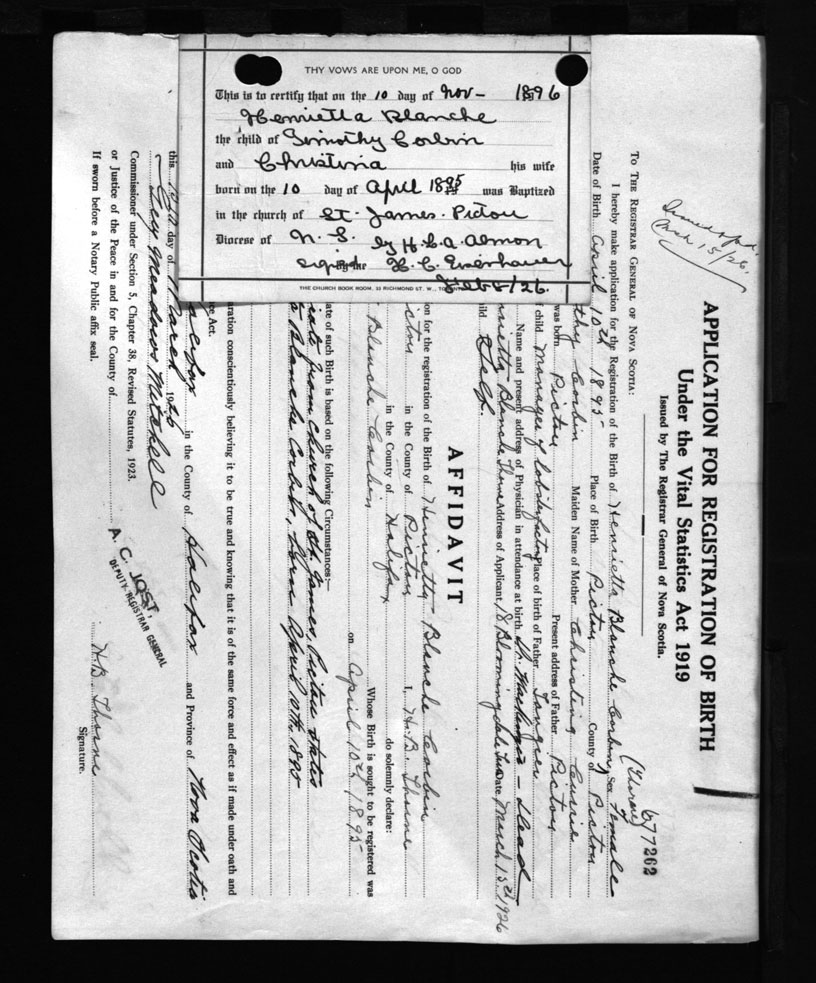 THY VOWS ARE UPON ME, O GOD
This is to certify that on the 10 day of Nov - 1896
Henrietta Blanche
the child of Timothy Corbin
and Christina his wife
born on the 10 day of April 1895 was Baptized
in the church of St. James. Pictou
Diocese of N. S. by H. L. A. Almon
Signed H. C. Eisenhauer
THE CHURCH BOOK ROOM, 33 RICHMOND ST. W.,
Feb 8/26.
March 15/26.
677262
APPLICATION FOR REGISTRATION OF BIRTH
Under the Vital Statistics Act 1919
Issued by The Registrar General of Nova Scotia.
TO THE REGISTRAR GENERAL OF NOVA SCOTIA:
I hereby make application for the Registration of the Birth of Henrietta Blanche Corbin Sex Female
Date of Birth April 10th 1895 Place of Birth Pictou County of Pictou
thy Corbin Maiden Name of Mother Christina Currie
was born Pictou Present address of Father Pictou
child Manager of lobster factory Place of birth of Father Tangier
Name and present address of Physician in attendance at birth Dr. - Dead
rietta Blanche Thorne Address of Applicant 18 Bloomingdale Date March 15th 1926
hild Self.
AFFIDAVIT
on for the registration of the Birth of Henrietta Blanche Corbin
ictou in the County of Pictou I, H. B. Thorne
in the County of Halifax do solemnly declare:
Whose Birth is sought to be registered was
Blanche Corbin on April 10th 1895
ate of such Birth is based on the following Circumstances:—
icate from church of St. James, Pictou states
a Blanche Corbin, born April 10th, 1895
aration conscientiously believing it to be true and knowing that it is of the same force and effect as if made under oath and
ce Act.
alifax in the County of Halifax and Province of Nova Scotia
this day of March 1926
Guy Meadows Mitchell H. B. Thorne
Signature.
Commissioner under Section 5, Chapter 38, Revised Statutes, 1923.
or Justice of the Peace in and for the County of
If sworn before a Notary Public affix seal.
A. C. JOST
DEPUTY REGISTRAR GENERAL